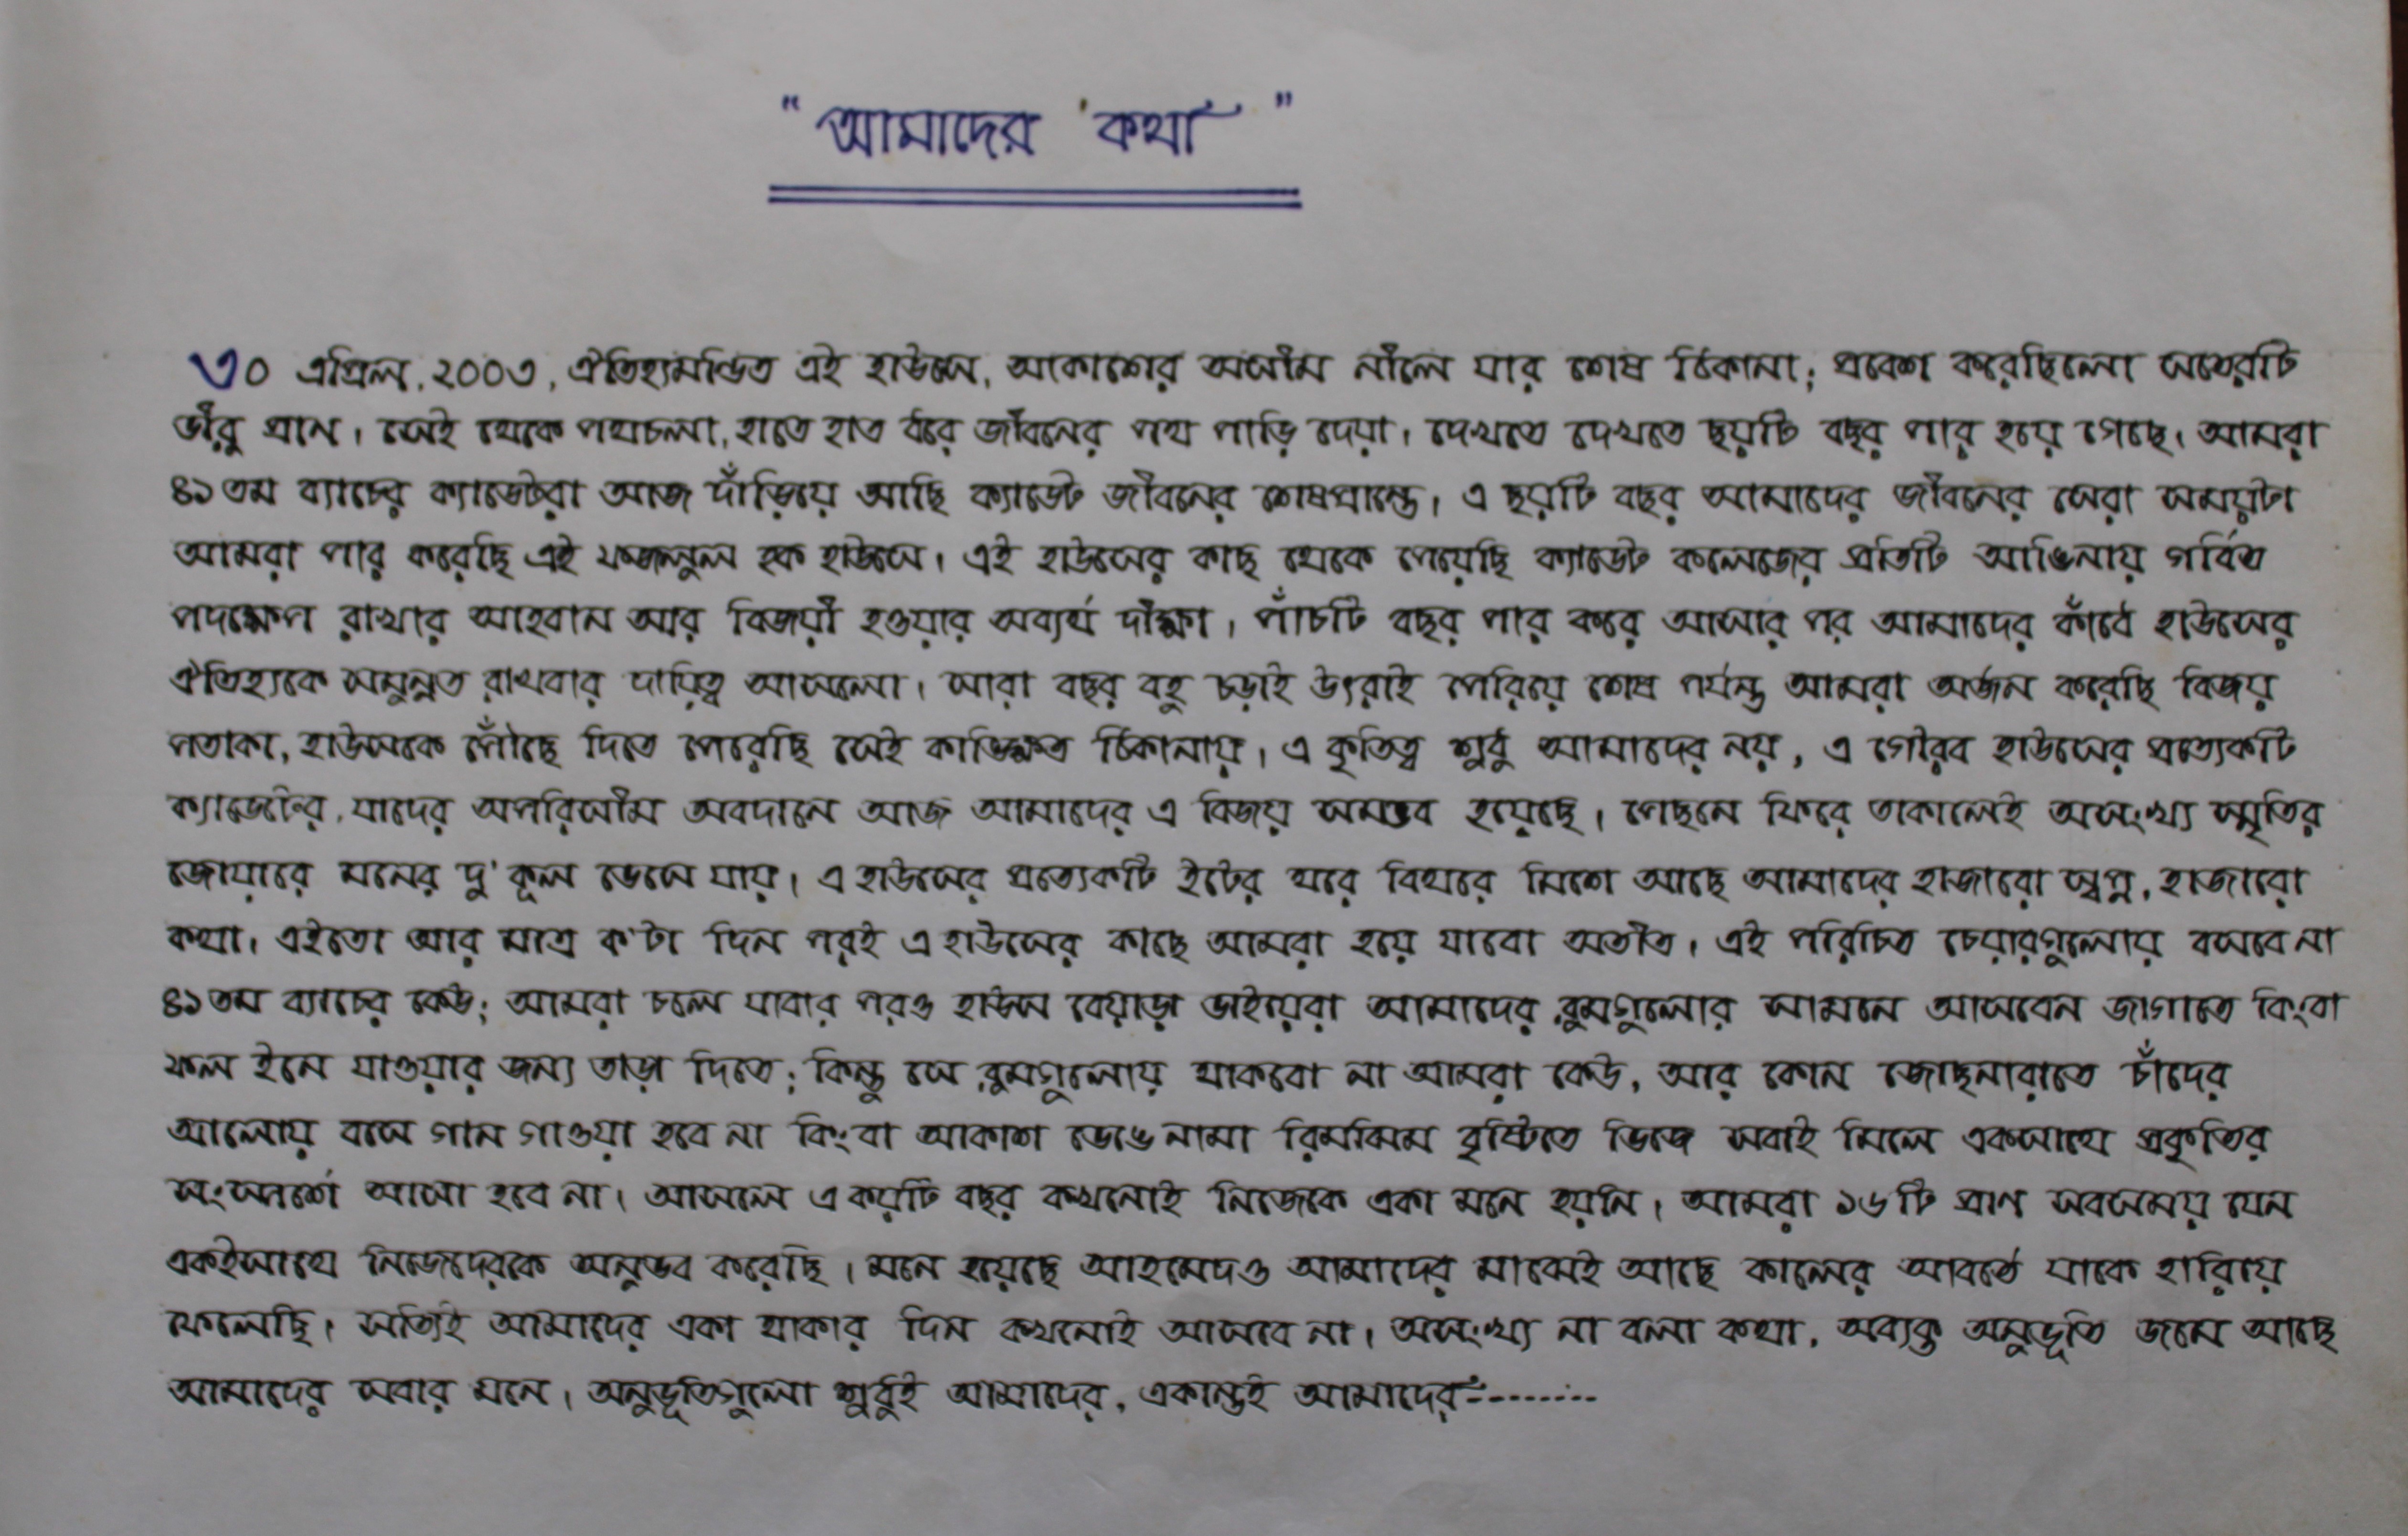 "আমাদের কথা"
৩০ এপ্রিল, ২০০৩, ঐতিহ্যমন্ডিত এই হাউসে, আকাশের অসীম নীলে যার শেষ ঠিকানা; প্রবেশ করেছিলো সতেরটি
ভীরু প্রাণ। সেই থেকে পথচলা, হাতে হাত ধরে জীবনের পথ পাড়ি দেয়া। দেখতে দেখতে ছয়টি বছর পার হয়ে গেছে। আমরা
৪১তম ব্যাচের ক্যাডেটরা আজ দাঁড়িয়ে আছি ক্যাডেট জীবনের শেষপ্রান্তে। এ ছয়টি বছর আমাদের জীবনের সেরা সময়টা
আমরা পার করেছি এই ফজলুল হক হাউসে। এই হাউসের কাছ থেকে পেয়েছি ক্যাডেট কলেজের প্রতিটি আঙিনায় গর্বিত
পদক্ষেপ রাখার আহবান আর বিজয়ী হওয়ার অব্যর্থ দীক্ষা। পাঁচটি বছর পার করে আসার পর আমাদের কাঁধে হাউসের
ঐতিহ্যকে সমুন্নত রাখবার দায়িত্ব আসলো। সারা বছর বহু চড়াই উৎরাই পেরিয়ে শেষ পর্যন্ত আমরা অর্জন করেছি বিজয়
পতাকা, হাউসকে পৌঁছে দিতে পেরেছি সেই কাঙ্ক্ষিত ঠিকানায়। এ কৃতিত্ব শুধু আমাদের নয়, এ গৌরব হাউসের প্রত্যেকটি
ক্যাডেটের, যাদের অপরিসীম অবদানে আজ আমাদের এ বিজয় সম্ভব হয়েছে। পেছনে ফিরে তাকালেই অসংখ্য স্মৃতির
জোয়ারে মনের দু'কূল ভেসে যায়। এ হাউসের প্রত্যেকটি ইটের থরে বিথরে মিশে আছে আমাদের হাজারো স্বপ্ন, হাজারো
কথা। এইতো আর মাত্র ক'টা দিন পরই এ হাউসের কাছে আমরা হয়ে যাবো অতীত। এই পরিচিত চেয়ারগুলোয় বসবে না
৪১তম ব্যাচের কেউ; আমরা চলে যাবার পরও হাউস বেয়াড়া ভাইয়েরা আমাদের রুমগুলোর সামনে আসবেন জাগাতে কিংবা
ফল ইনে যাওয়ার জন্য তাড়া দিতে; কিন্তু সে রুমগুলোয় থাকবো না আমরা কেউ, আর কোন জোছনারাতে চাঁদের
আলোয় বসে গান গাওয়া হবে না কিংবা আকাশ ভেঙে নামা রিমঝিম বৃষ্টিতে ভিজে সবাই মিলে একসাথে প্রকৃতির
সংস্পর্শে আসা হবে না। আসলে এ কয়টি বছর কখনোই নিজেকে একা মনে হয়নি। আমরা ১৬টি প্রাণ সবসময় যেন
একইসাথে নিজেদেরকে অনুভব করেছি। মনে হয়েছে আহমেদও আমাদের মাঝেই আছে কালের আবর্তে যাকে হারিয়ে
ফেলেছি। সত্যিই আমাদের একা থাকার দিন কখনোই আসবে না। অসংখ্য না বলা কথা, অব্যক্ত অনুভূতি জমে আছে
আমাদের সবার মনে। অনুভূতিগুলো শুধুই আমাদের, একান্তই আমাদের..........